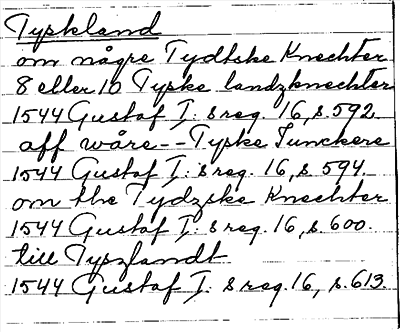 Tyskland
om någre Tydtske Knechter
8 eller 10 Tyske landzknechter
1544 Gustaf I:s reg. 16, s. 592.
aff wåre -- Tyske Junckere
1544 Gustaf I:s reg. 16, s. 594.
om the Tydzske Knechter
1544 Gustaf I:s reg. 16, s. 600.
till Tyszlandt
1544 Gustaf I:s reg. 16, s. 613.